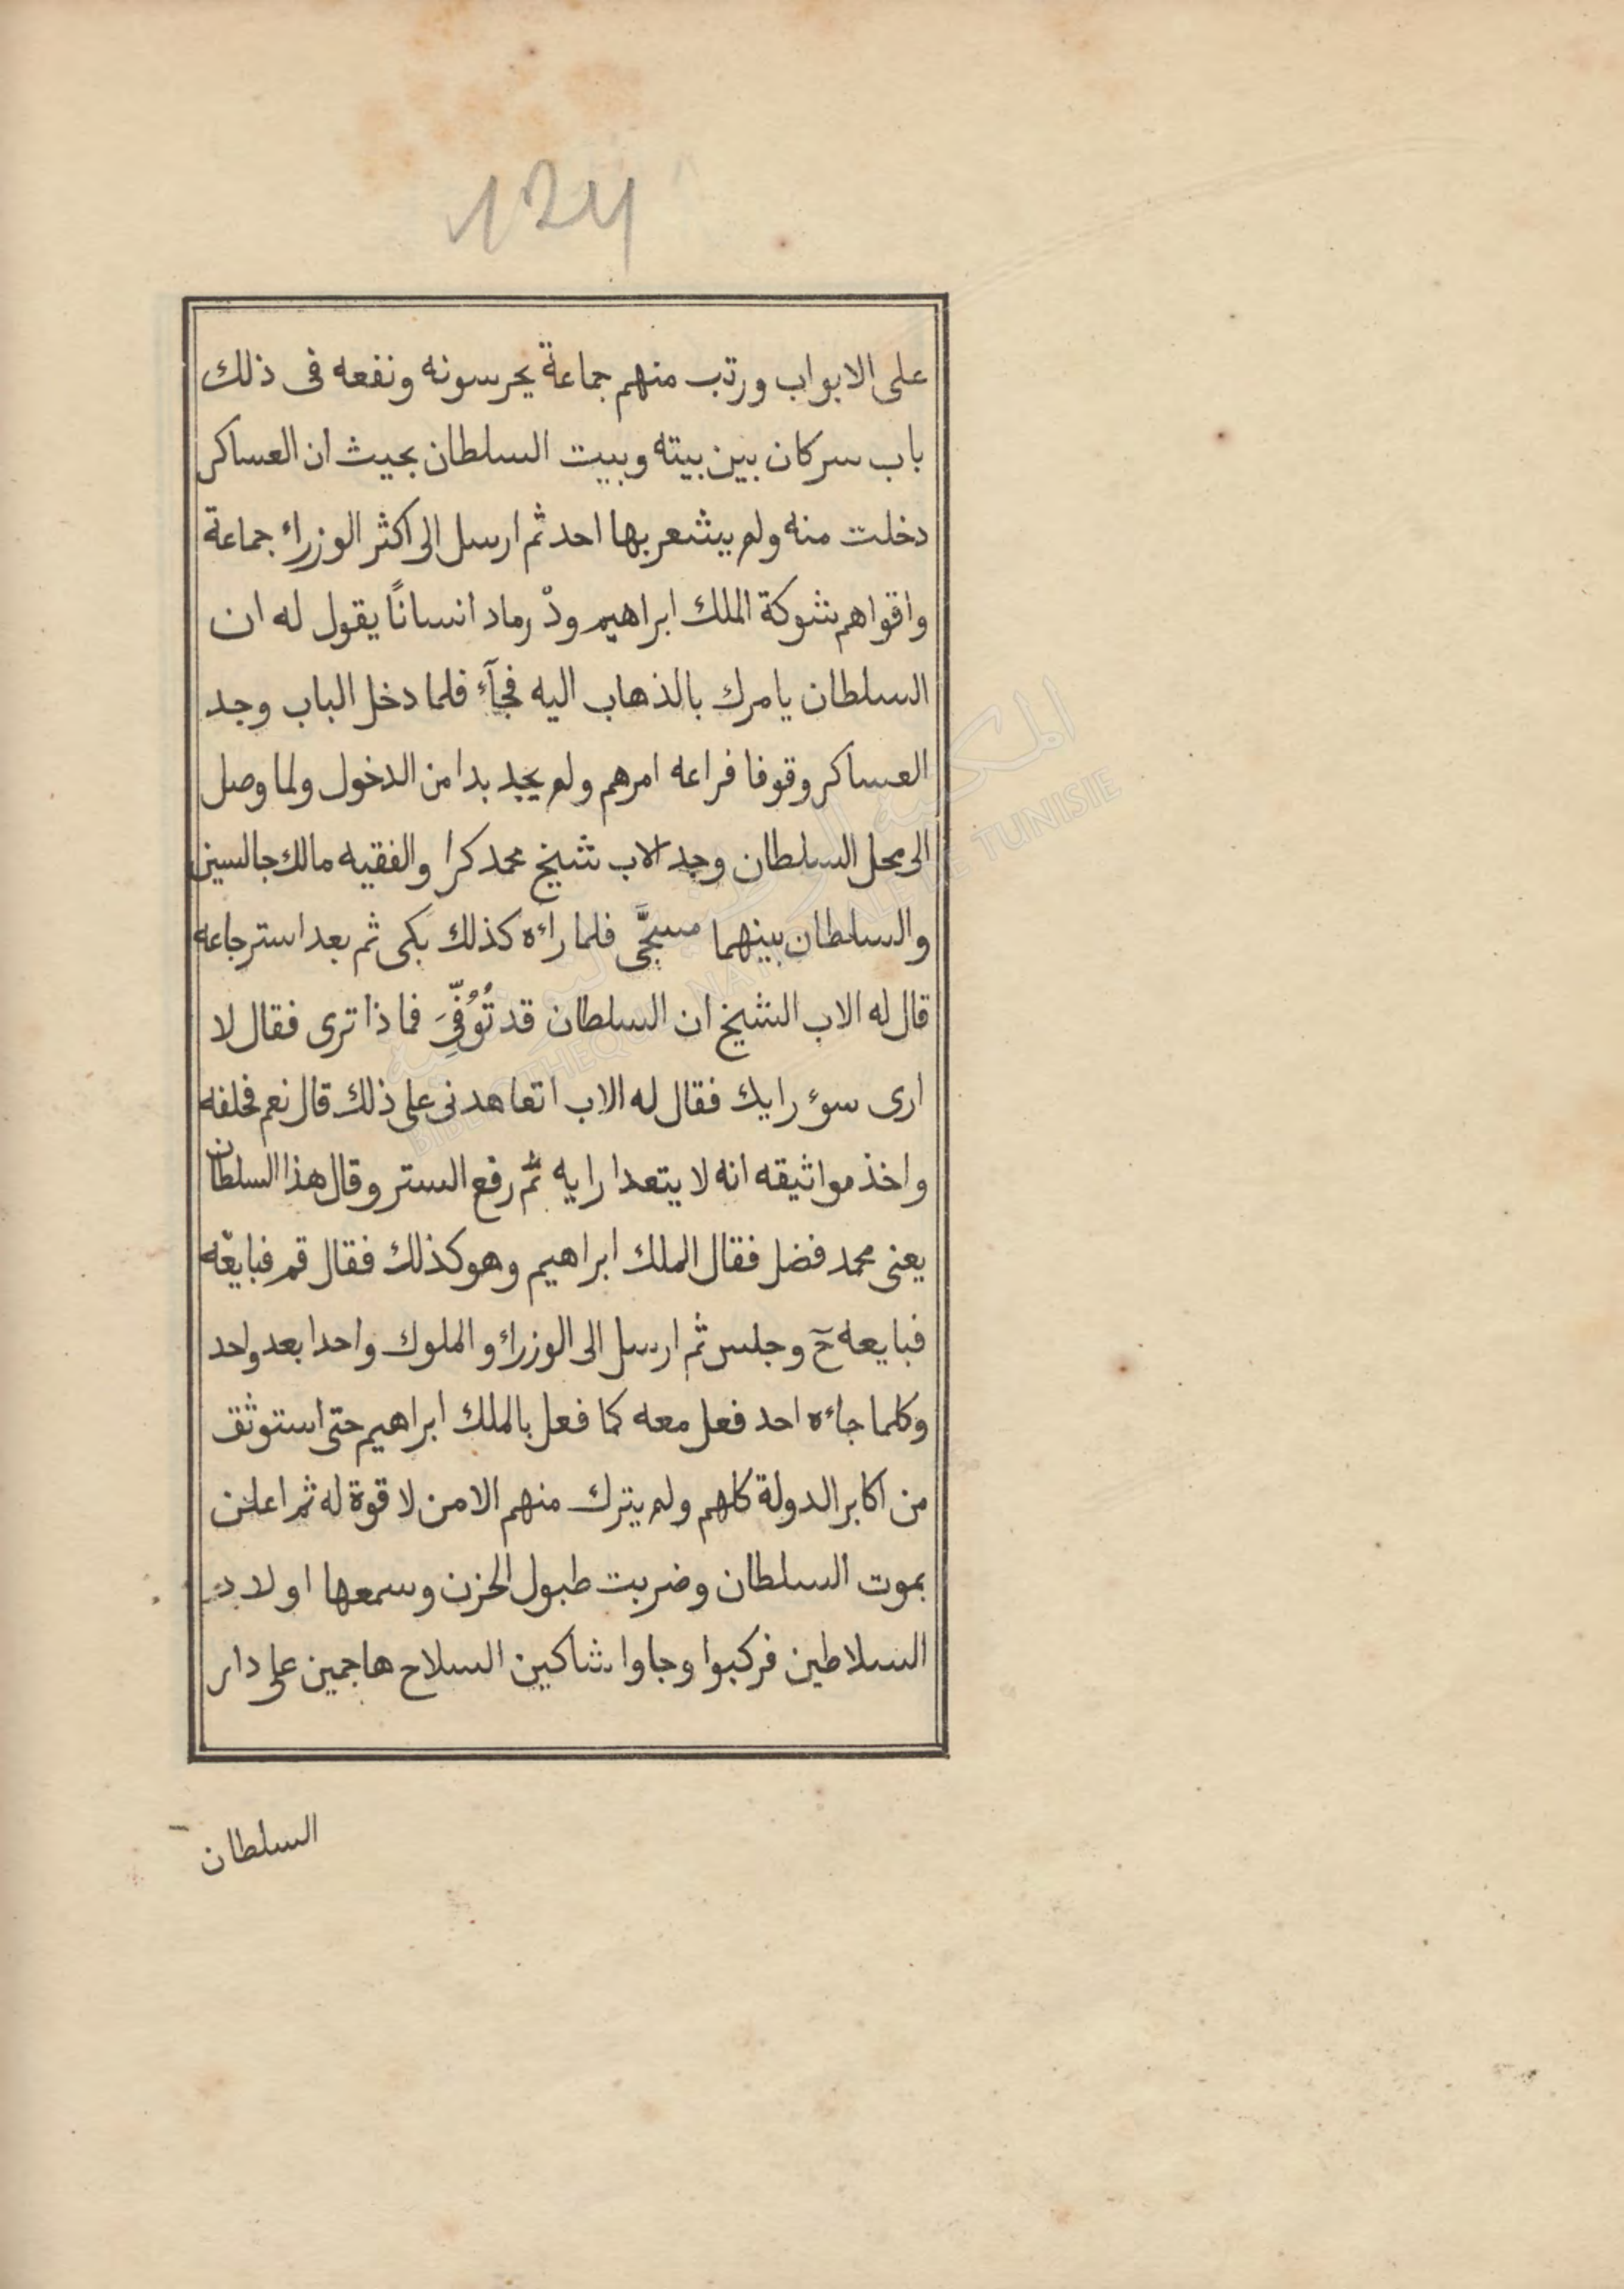 124
على الابواب ورتب منهم جماعة يحرسونه ونفعه فى ذلك
باب سر كان بين بيته وبيت السلطان بحيث ان العساكر
دخلت منه ولم يشعر بها احد ثم ارسل الى اكثر الوزراء جماعة
واقواهم شوكة الملك ابراهيم ودْ رماد انسانًا يقول له ان
السلطان يامرك بالذهاب اليه فجآء فلما دخل الباب وجد
العساكر وقوفا فراعه امرهم ولم يجد بدا من الدخول ولما وصل
الى محل السلطان وجد الاب شيخ محمد كرا والفقيه مالك جالسين
والسلطان بينهما مسجَّى فلما راءه كذلك بكى ثم بعد استرجاعه
قال له الاب الشيخ ان السلطان قد تُوُفِّىَ فما ذا ترى فقال لا
ارى سوء رايك فقال له الاب اتعاهدنى على ذلك قال نعم فحلفه
واخذ مواثيقه انه لا يتعدا رايه ثم رفع الستر وقال هذا السلطان
يعنى محمد فضل فقال الملك ابراهيم وهو كذلك فقال قم فبايعْه
فبايعه حٓ وجلس ثم ارسل الى الوزراء والملوك واحدا بعد واحد
وكلما جاءه احد فعل معه كما فعل بالملك ابراهيم حتى استوثق
من اكابر الدولة كلهم ولم يترك منهم الا من لا قوة له ثم اعلن
بموت السلطان وضربت طبول الحزن وسمعها اولاد
السلاطين فركبوا وجاوا شاكين السلاح هاجمين على دار
السلطان